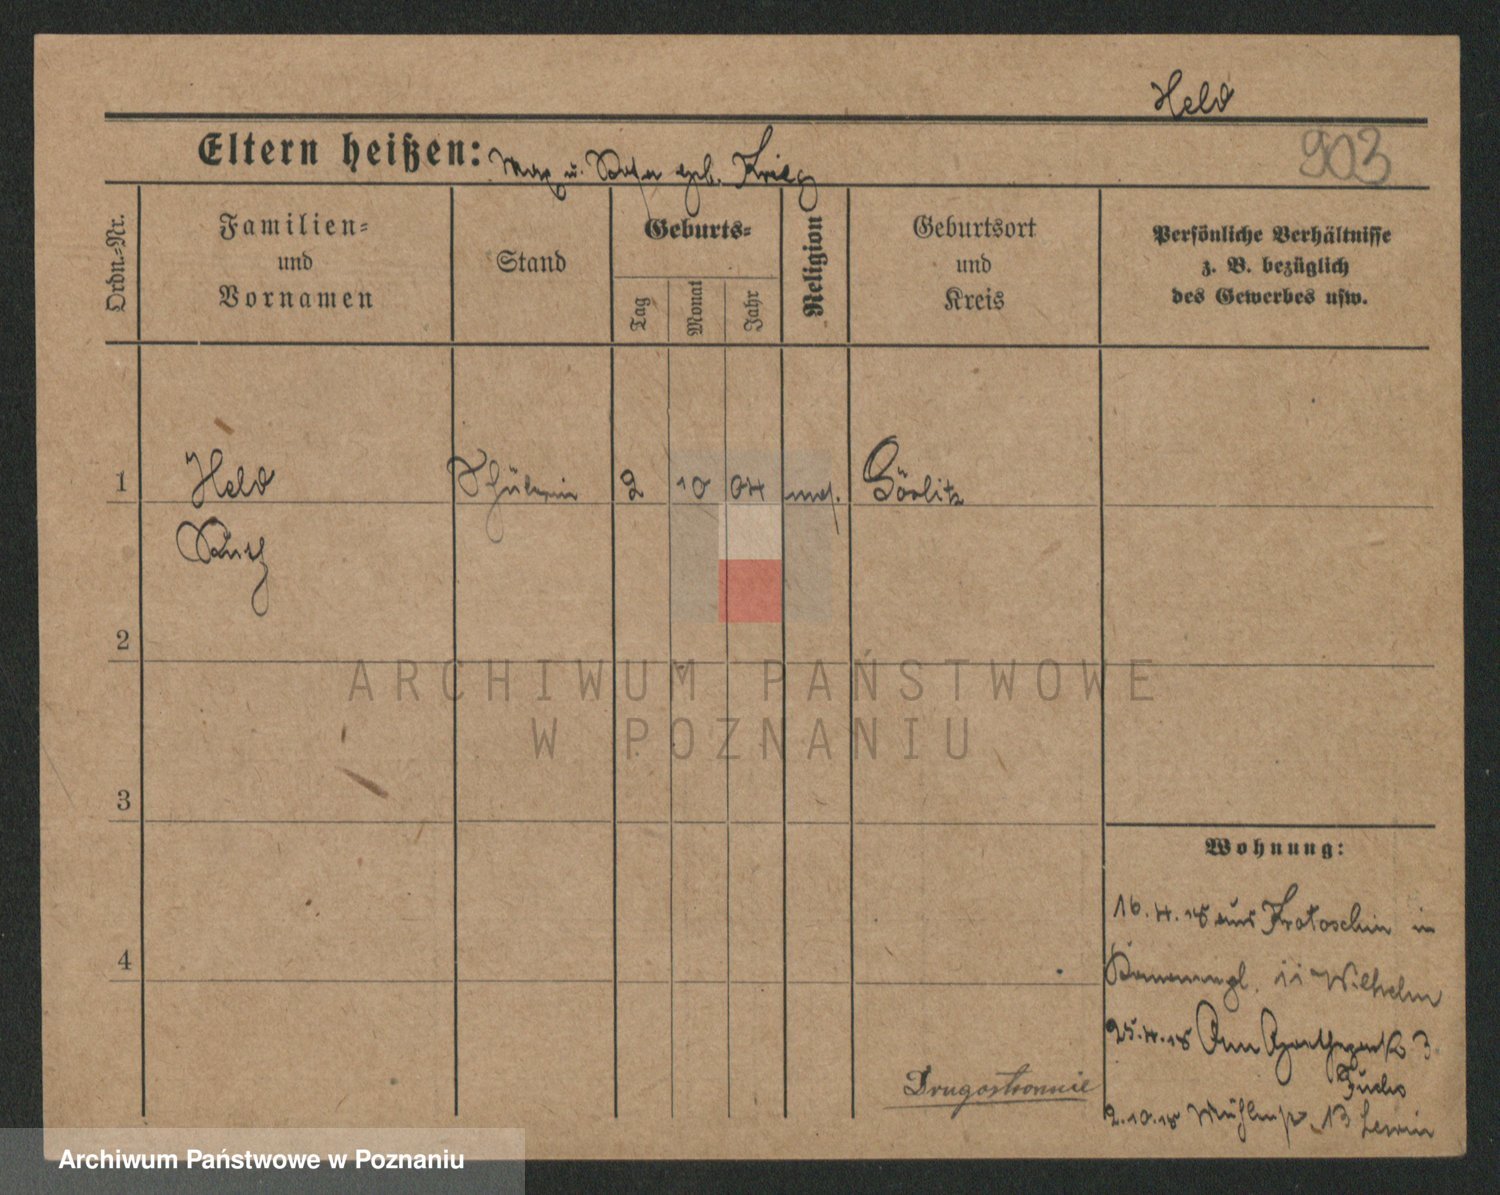 Held
903
Eltern heißen: Max u. Rosa geb. Krieg
Ordn.=Nr.
Familien=
und
Vornamen
Stand
Geburts=
Tag
Monat
Jahr
Religion
Geburtsort
und
Kreis
Persönliche Verhältnisse
z. B. bezüglich
des Gewerbes usw.
1
Held
Schülerin
2
10
04
mos.
Görlitz
Ruth
2
ARCHIWUM PAŃSTWOWE
W POZNANIU
3
Wohnung:
16.4.18 aus Krotoschin in
4
11 Wilhelm
25.4.18 Am 3
Fuchs
Drugostronnie
2.10.18 Mühlenstr. 13 Lewin
Archiwum Państwowe w Poznaniu